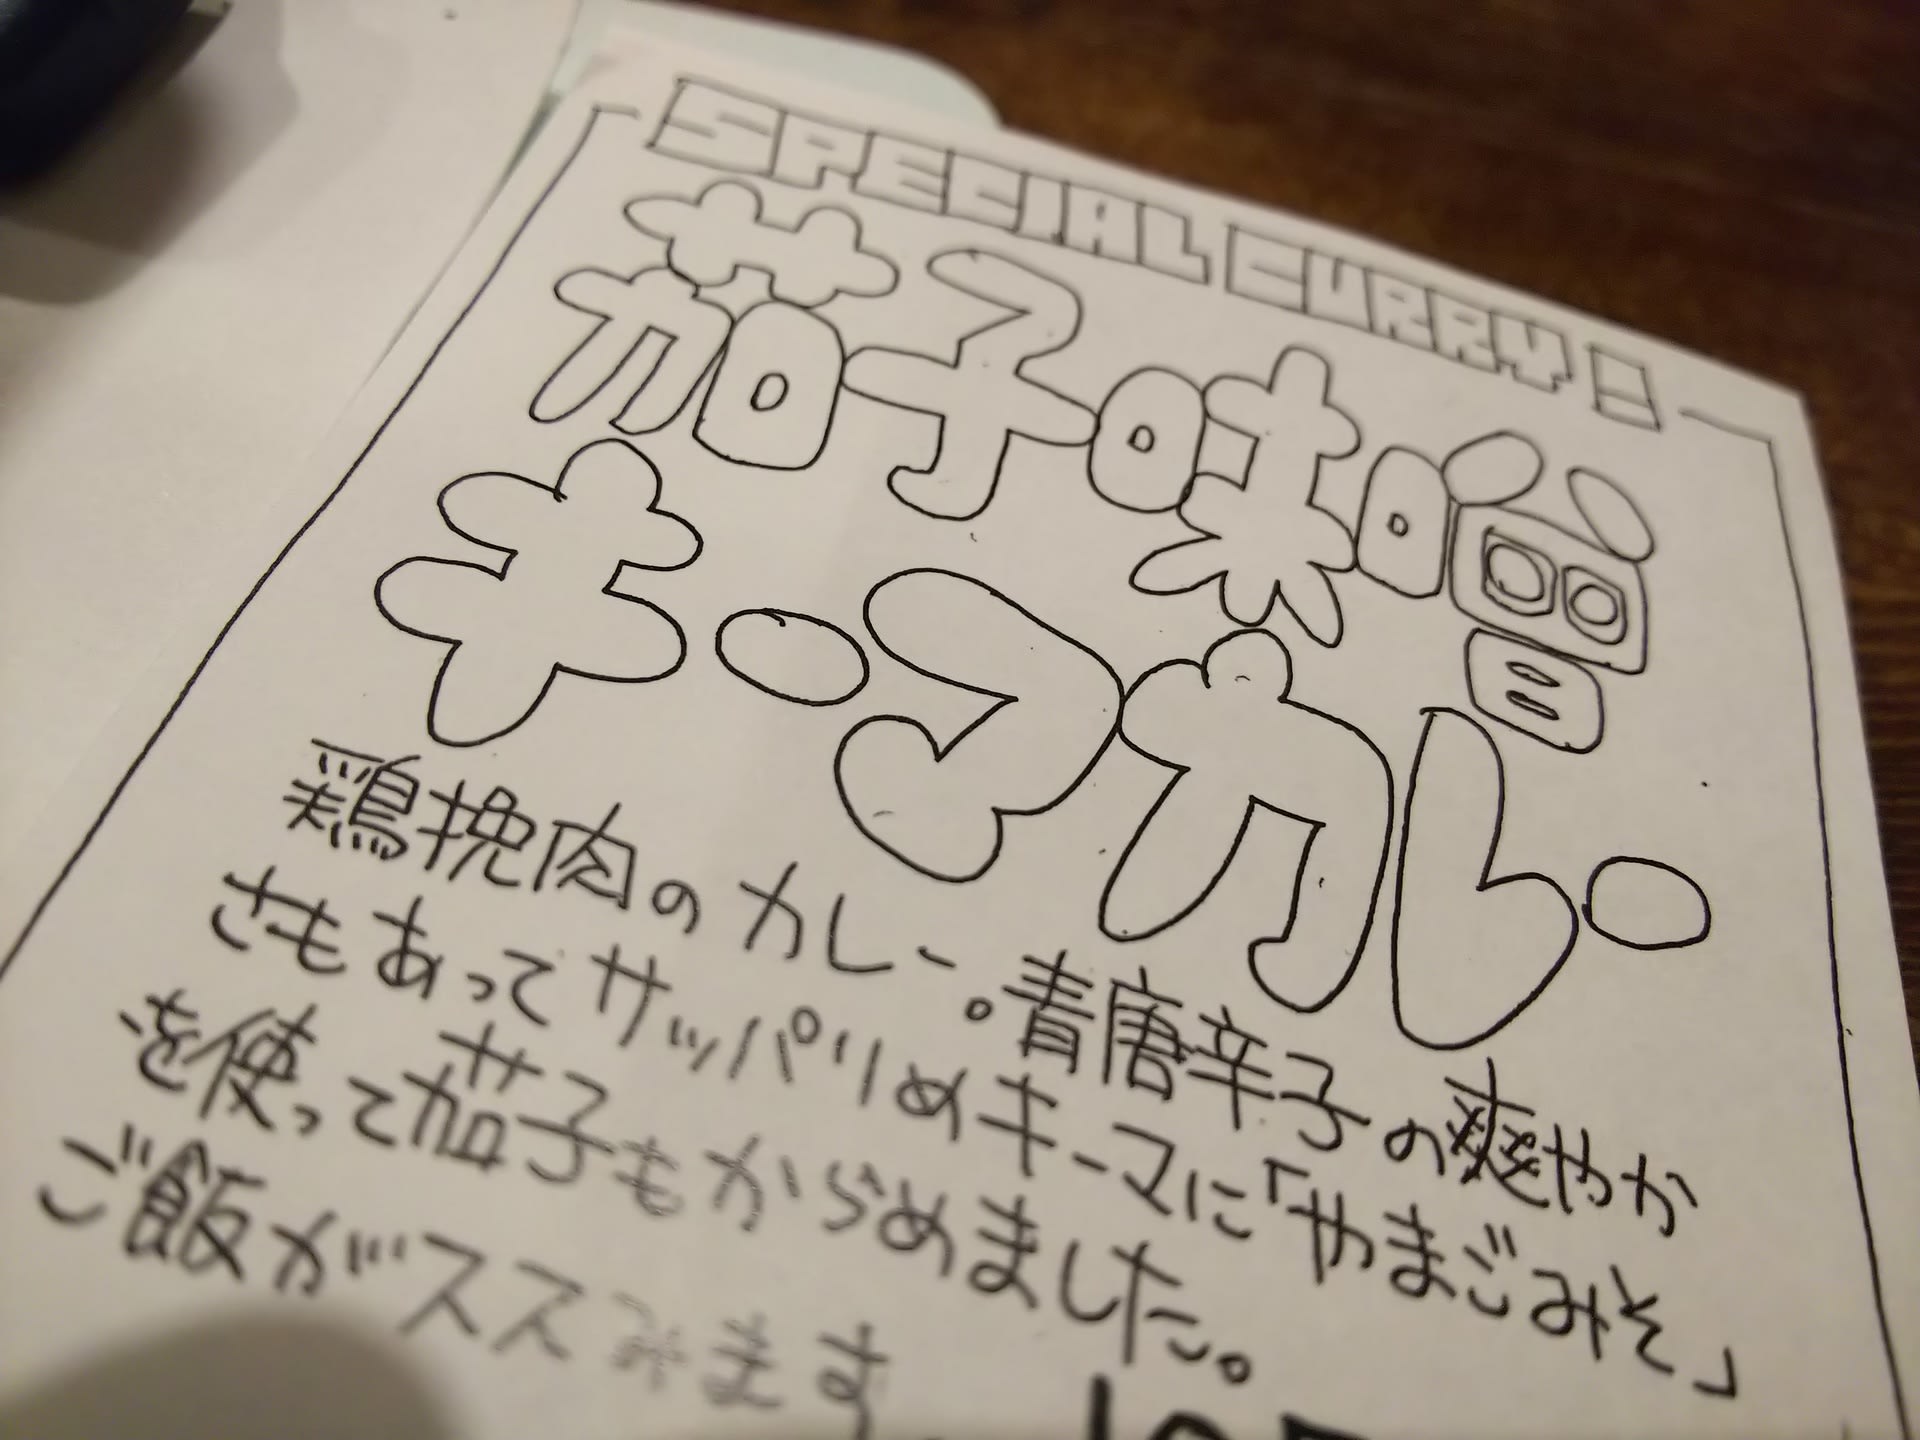 SPECIAL CURRY!
茄子味噌
キーマカレー
鶏挽肉のカレー。青唐辛子の爽やか
さもあってサッパリめキーマに「やまごみそ」
を使って茄子もからめました。
ご飯がススみます